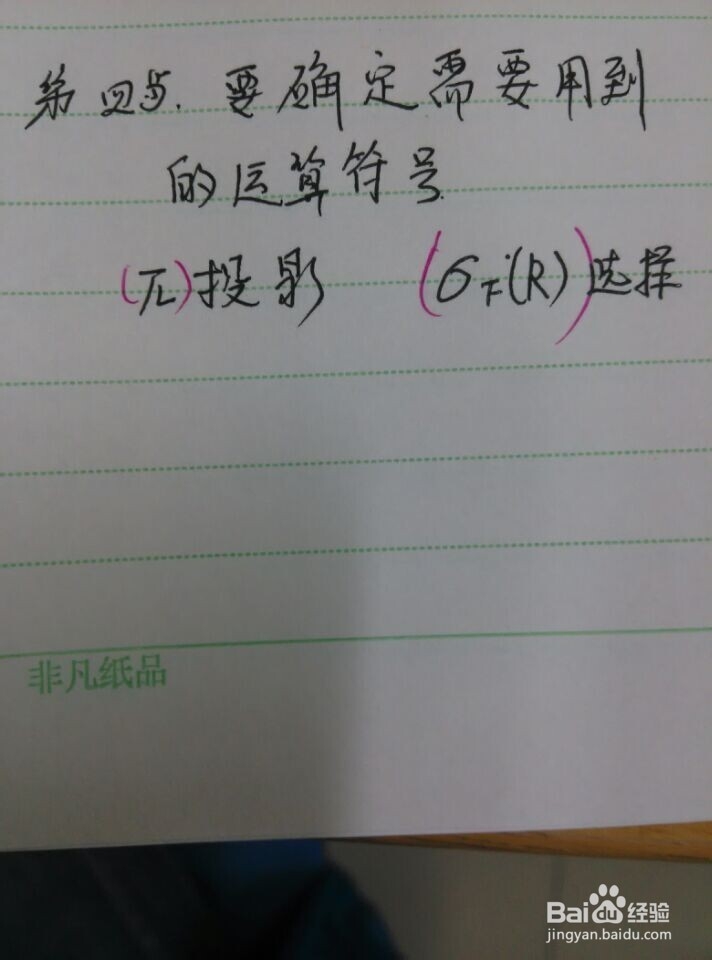 第四步.要确定需要用到
的运算符号.
(π)投影 (σF(R))选择
非凡纸品
Bai du 经验
jingyan.baidu.com